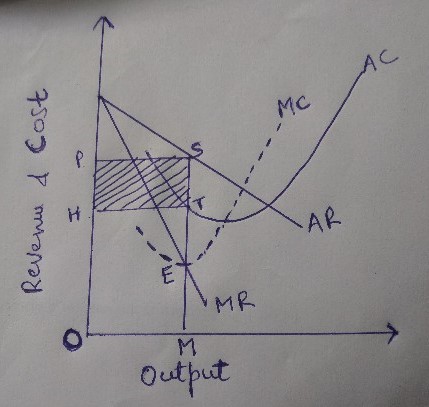 Revenue & Cost
AC
MC
P
S
H
T
AR
E
MR
O
M
Output